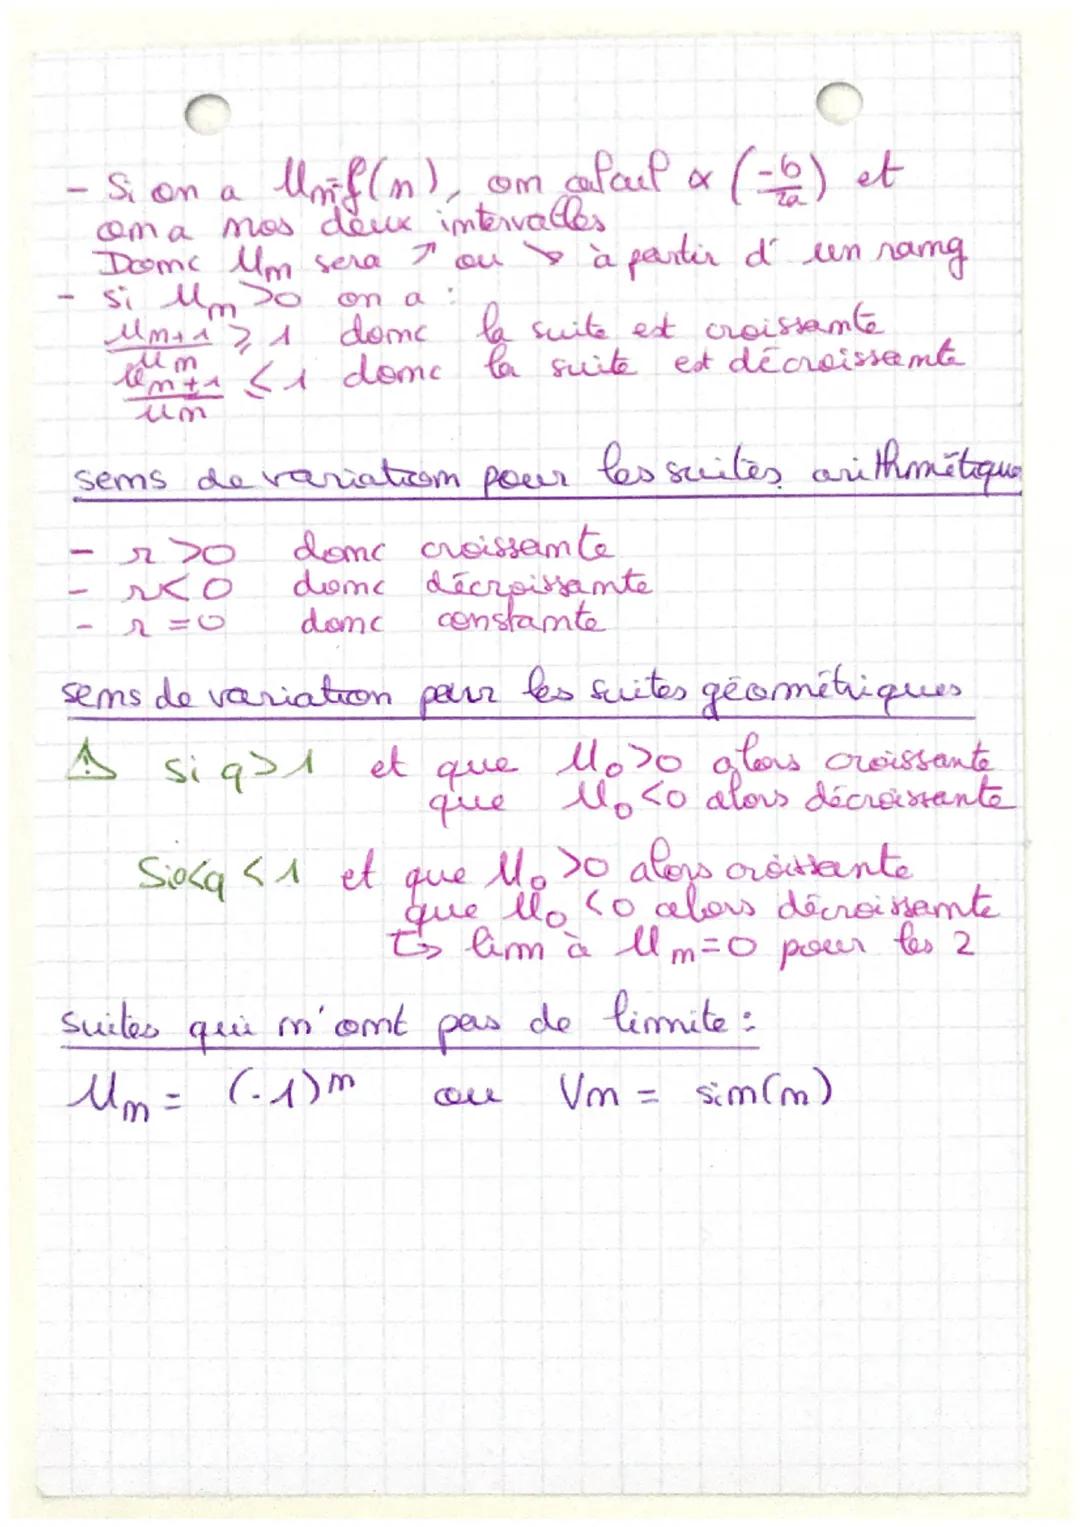 - Si on a Un=f(n), on calcul α (-b/2a) et
on a nos deux intervalles
Donc Un sera ↗ ou ↘ à partir d' un rang
- si Un >0 on a :
Un+1/Un ⩾ 1 donc la suite est croissante
Un+1/Un ≤ 1 donc la suite est décroissante
sens de variation pour les suites arithmétique
- r >0 donc croissante
- r<0 donc décroissante
- r =0 donc constante
sens de variation pour les suites géométriques
⚠ si q>1 et que U0>0 alors croissante
que U0<0 alors décroissante
Si 0<q <1 et que U0 >0 alors croissante
que U0 <0 alors décroissante
↳ lim à Un=0 pour les 2
suites qui n'ont pas de limite :
Un = (-1)^n ou Vn = sin(n)